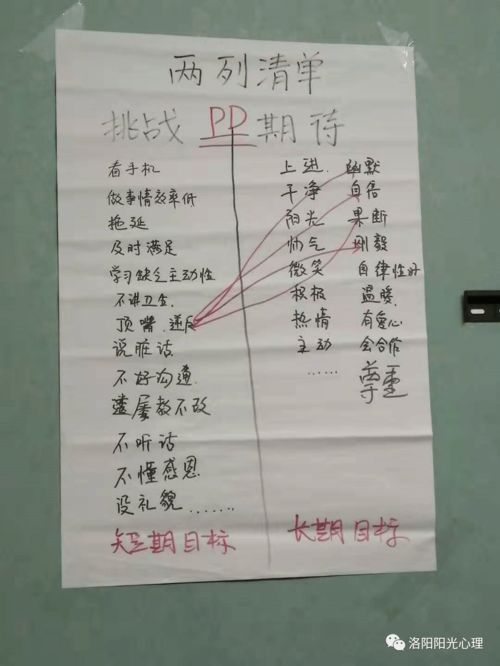 两列清单
挑战 PD 期待
看手机
做事情效率低
拖延
及时满足
学习缺乏主动性
不讲卫生
顶嘴.逆反
说脏话
不好沟通
屡教不改
不听话
不懂感恩
没礼貌.......
短期目标
上进. 幽默
干净 自信
阳光 果断
帅气 刚毅
微笑 自律性好
积极 温暖
热情 有爱心
主动 会合作
...... 尊重
长期目标
洛阳阳光心理